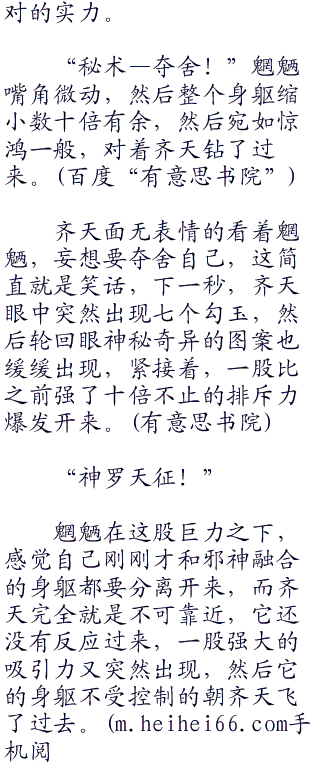 对的实力。
“秘术—夺舍！”魍魉
嘴角微动，然后整个身躯缩
小数十倍有余，然后宛如惊
鸿一般，对着齐天钻了过
来。(百度“有意思书院”)
齐天面无表情的看着魍
魉，妄想要夺舍自己，这简
直就是笑话，下一秒，齐天
眼中突然出现七个勾玉，然
后轮回眼神秘奇异的图案也
缓缓出现，紧接着，一股比
之前强了十倍不止的排斥力
爆发开来。(有意思书院)
“神罗天征！”
魍魉在这股巨力之下，
感觉自己刚刚才和邪神融合
的身躯都要分离开来，而齐
天完全就是不可靠近，它还
没有反应过来，一股强大的
吸引力又突然出现，然后它
的身躯不受控制的朝齐天飞
了过去。(m.heihei66.com手
机阅